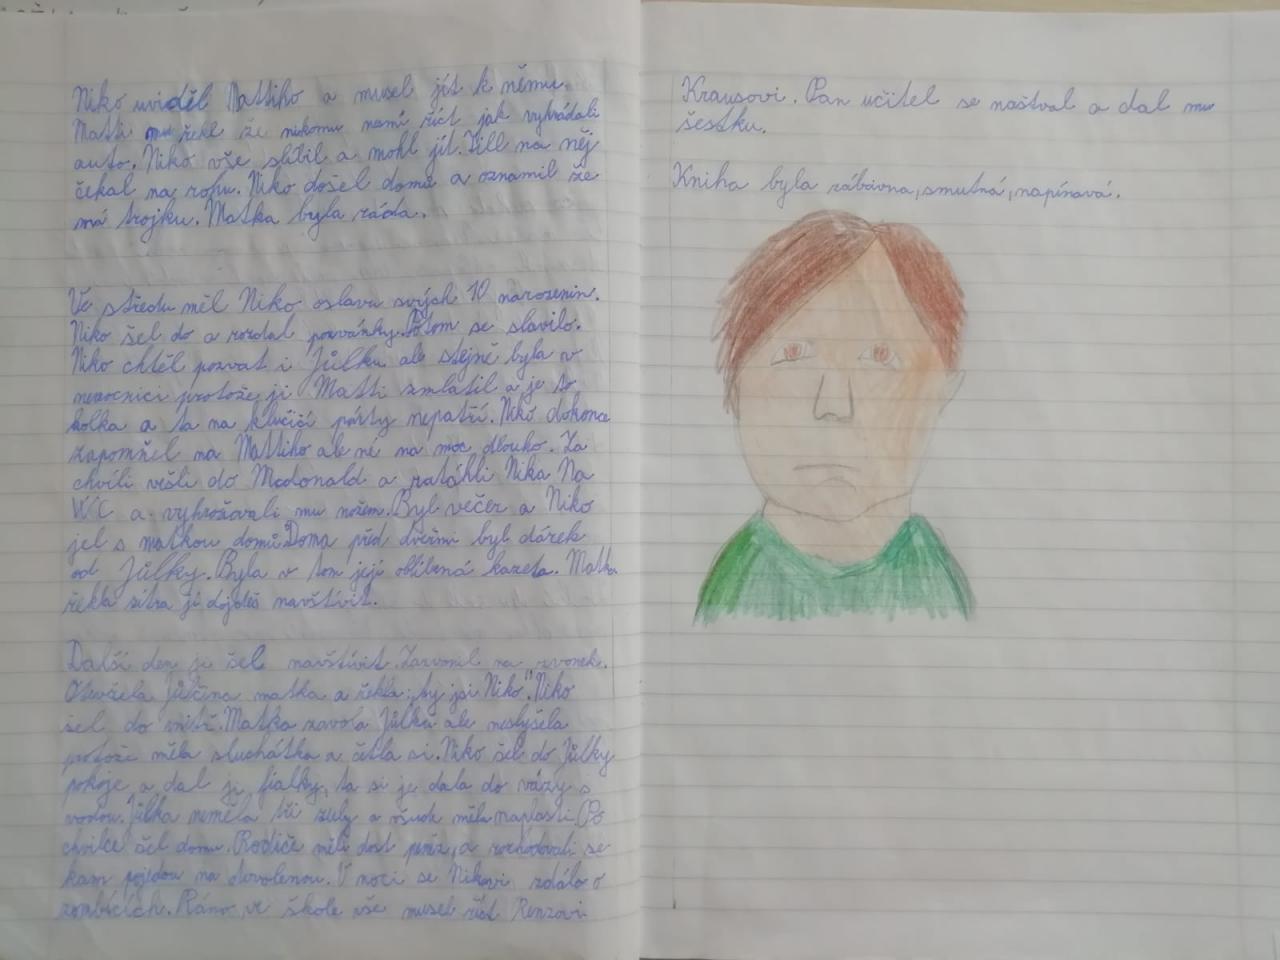 Niko uviděl Mattiho a musel jít k němu.
Matti mu řekl že nikomu nesmí říct jak vyhrádali
auto. Niko vše slíbil a mohl jít. Till na něj
čekal na rohu. Niko došel domů a oznamil že
má trojku. Matka byla ráda.
Ve středu měl Niko oslavu svých 10 narozenin.
Niko šel do a rozdal pozvánky. Potom se slavilo.
Niko chtěl pozvat i Jůlku ale stejně byla v
nemocnici protože ji Matti zmlátil a je to
holka a ta na klučičí párty nepatří. Niko dokonce
zapomněl na Mattiho ale né na moc dlouho. Za
chvíli vešli do Mcdonald a zatáhli Nika Na
WC a vyhrožovali mu nožem. Byl večer a Niko
jel s matkou domů. Doma před dveřmi byl dárek
od Jůlky. Byla v tom její oblíbená kazeta. Matka
řekla zítra ji dojdeš navštívit.
Další den ji šel navštívit. Zazvonil na zvonek.
Otevřela Jůlčina matka a řekla: ty jsi Niko". Niko
šel do vnitř. Matka zavola Jůlku ale neslyšela
protože měla sluchátka a četla si. Niko šel do Jůlky
pokoje a dal ji fialky, ta si je dala do vázy s
vodou. Jůlka neměla tři zuby a všude měla naplasti. Po
chvilce šel domu. Rodiče měli dost peněz, a rozhodovali se
kam pojedou na dovolenou. V noci se Nikovi zdálo o
zombících. Ráno ve škole vše musel říct Renzovi
Krausovi. Pan učitel se naštval a dal mu
šestku.
Kniha byla zábavna, smutná, napínavá.